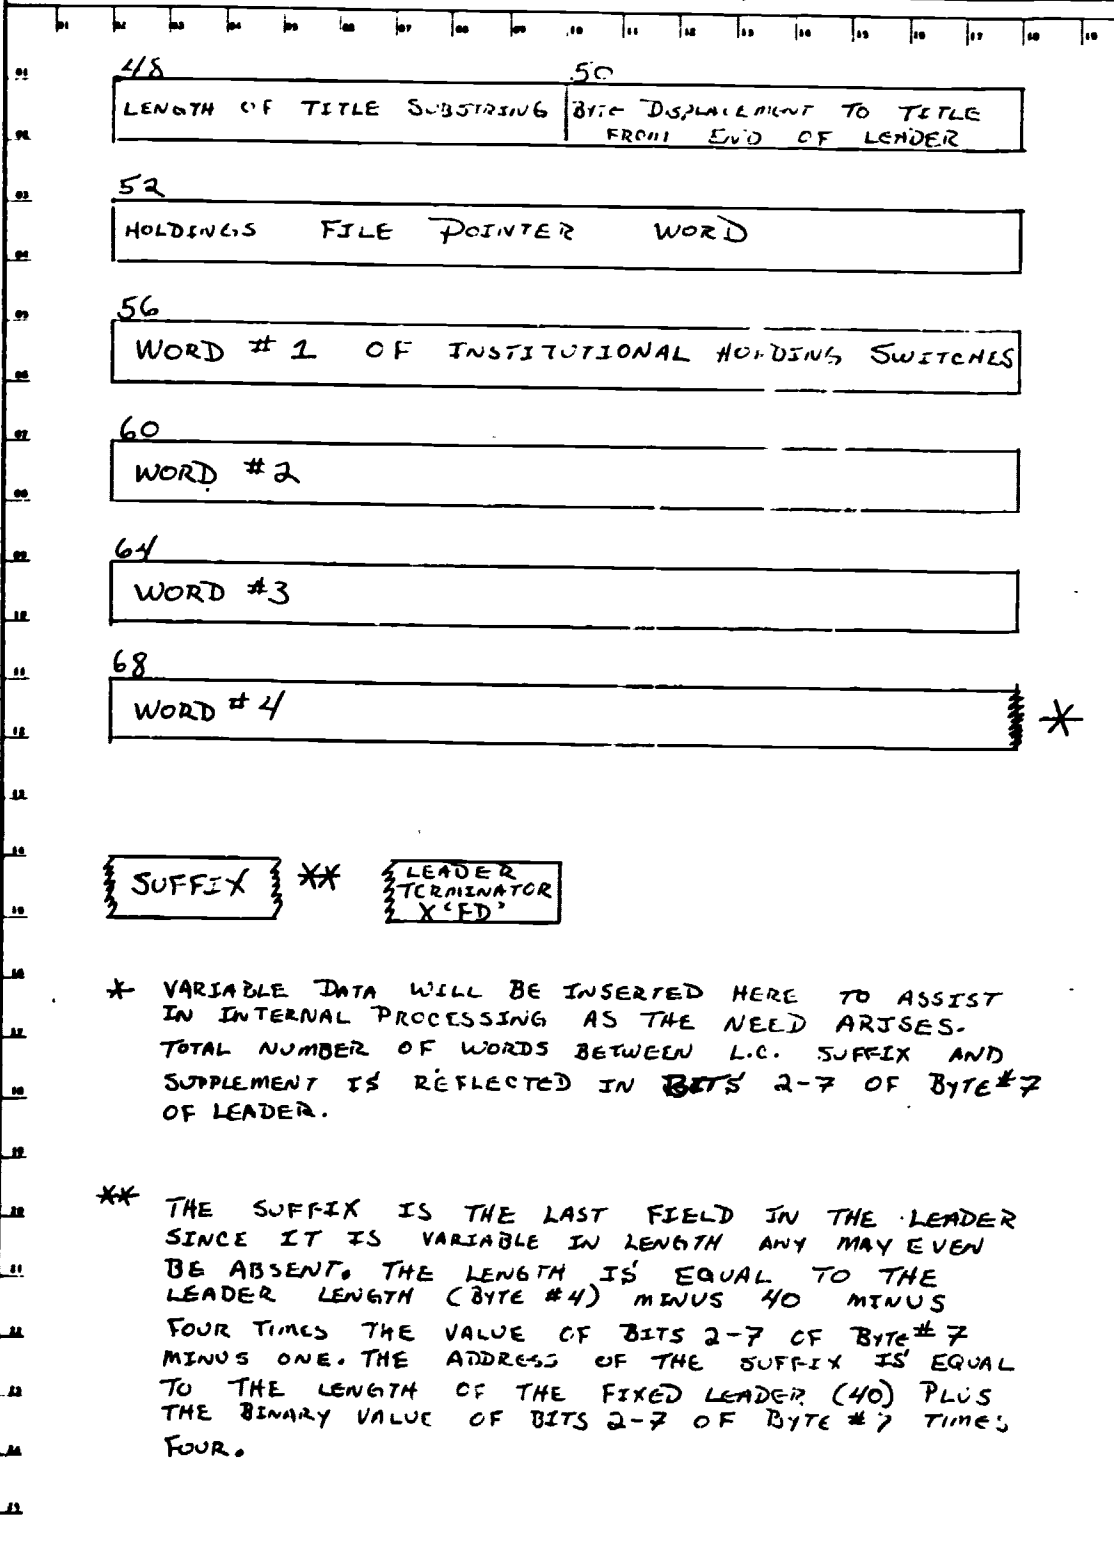 01 02 03 04 05 06 07 08 09 10 11 12 13 14 15 16 17 18 19
01
48 50
LENGTH OF TITLE SUBSTRING BYTE DISPLACEMENT TO TITLE
FROM END OF LEADER
02
03
52
HOLDINGS FILE POINTER WORD
04
05
56
WORD #1 OF INSTITUTIONAL HOLDING SWITCHES
06
07
60
WORD #2
08
09
64
WORD #3
10
11
68
WORD #4 *
12
13
14
SUFFIX ** LEADER
TERMINATOR
X'FD'
15
16
* VARIABLE DATA WILL BE INSERTED HERE TO ASSIST
IN INTERNAL PROCESSING AS THE NEED ARISES.
17
TOTAL NUMBER OF WORDS BETWEEN L.C. SUFFIX AND
SUPPLEMENT IS REFLECTED IN BITS 2-7 OF BYTE #7
18
OF LEADER.
19
** THE SUFFIX IS THE LAST FIELD IN THE LEADER
20
SINCE IT IS VARIABLE IN LENGTH ANY MAY EVEN
BE ABSENT. THE LENGTH IS EQUAL TO THE
21
LEADER LENGTH (BYTE #4) MINUS 40 MINUS
FOUR TIMES THE VALUE OF BITS 2-7 OF BYTE #7
22
MINUS ONE. THE ADDRESS OF THE SUFFIX IS EQUAL
TO THE LENGTH OF THE FIXED LEADER (40) PLUS
23
THE BINARY VALUE OF BITS 2-7 OF BYTE #7 TIMES
FOUR.
24
25